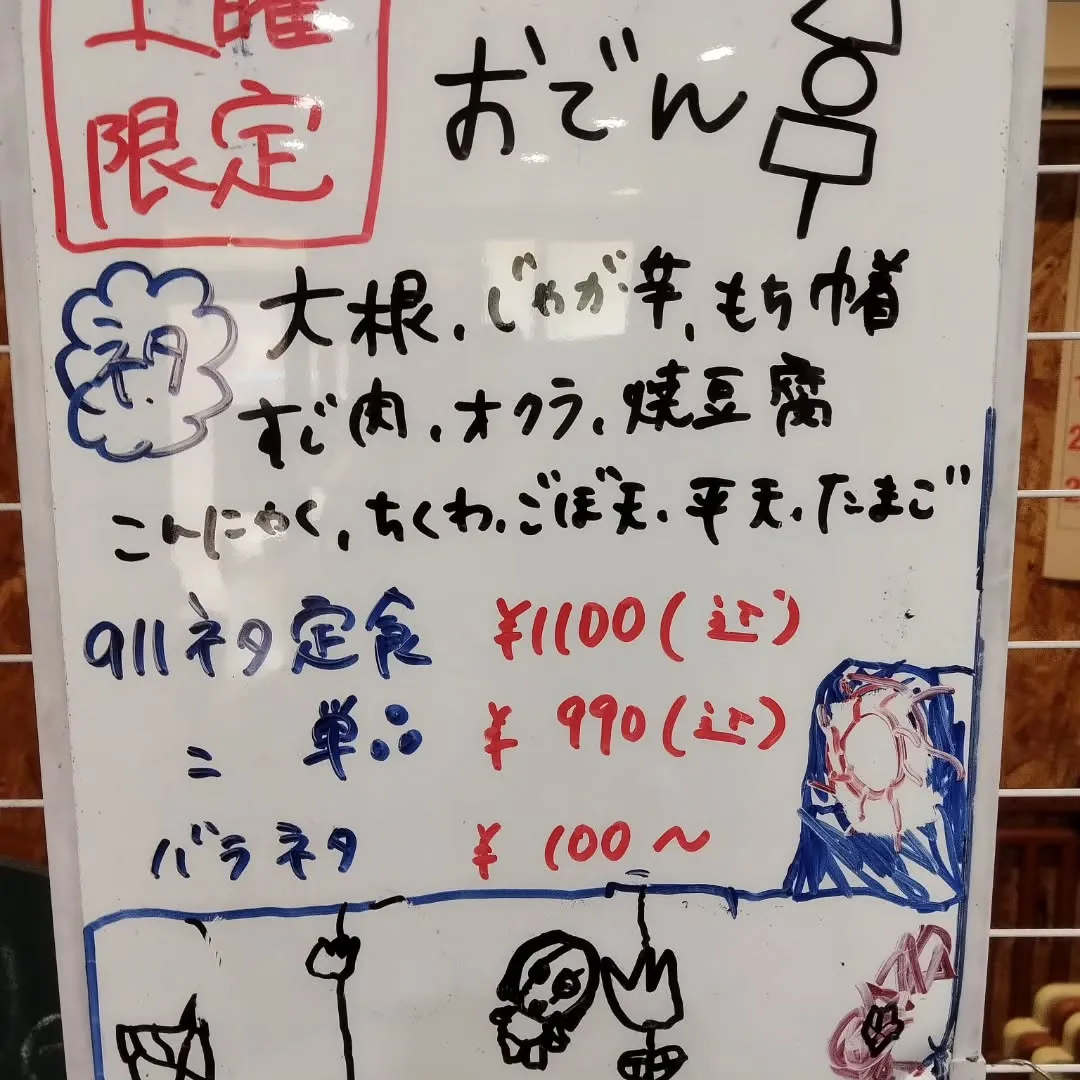 土曜
限定
おでん
ネタ
大根、じゃが芋、もち巾着
すじ肉、オクラ、焼豆腐
こんにゃく、ちくわ、ごぼ天、平天、たまご
911ネタ定食 ¥1100(込)
〃 単品 ¥990(込)
バラネタ ¥100〜